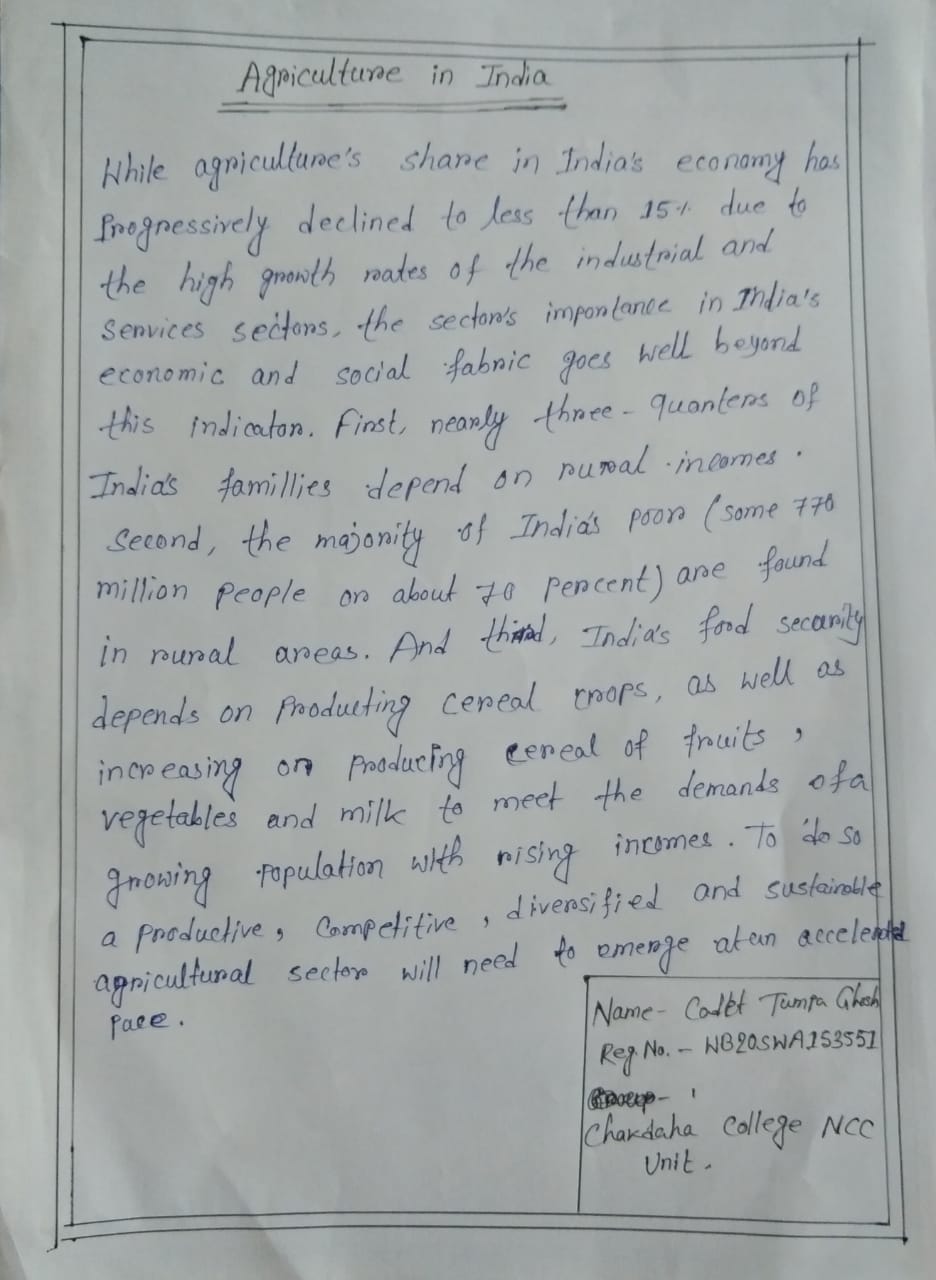 Agriculture in India
While agriculture's share in India's economy has
Progressively declined to less than 15% due to
the high growth rates of the industrial and
Services sectors, the sector's importance in India's
economic and social fabric goes well beyond
this indicator. First, nearly three-quarters of
India's famillies depend on rural incomes.
Second, the majority of India's poor (some 770
million people or about 70 percent) are found
in rural areas. And third, India's food security
depends on Producting cereal crops, as well as
increasing or producing cereal of fruits,
vegetables and milk to meet the demands of a
growing population with rising incomes. To do so
a productive, Competitive, diversified and sustainable
agricultural sector will need to emerge at an accelerated
Pace.
Name- Cadet Tumpa Ghosh
Reg. No. - WB20SWA153551
Chakdaha College NCC
Unit.